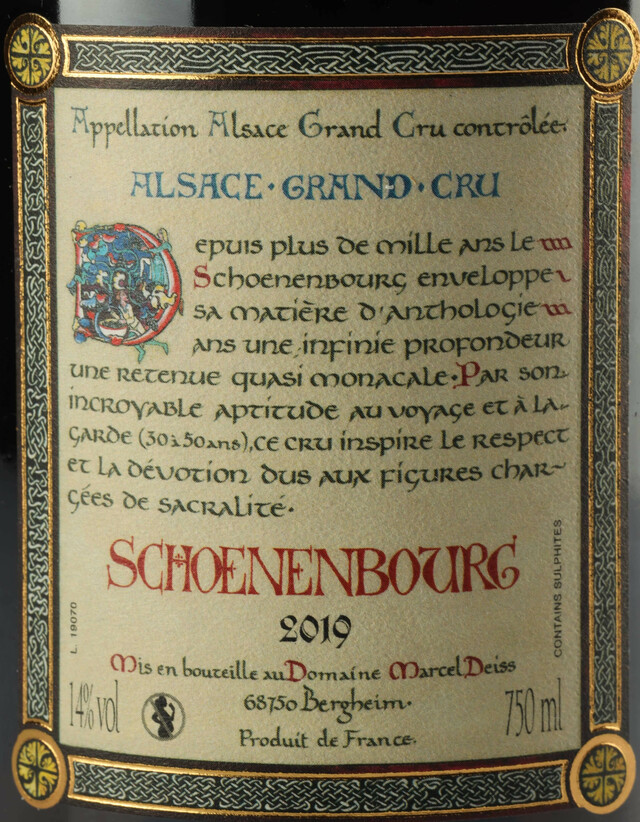 Appellation Alsace Grand Cru contrôlée.
ALSACE · GRAND · CRU
Depuis plus de mille ans le
Schoenenbourg enveloppe
sa matière d'anthologie
dans une infinie profondeur
une retenue quasi monacale. Par son
incroyable aptitude au voyage et à la
garde (30 à 50 ans), ce cru inspire le respect
et la dévotion dus aux figures char-
gées de sacralité.
SCHOENENBOURG
2019
Mis en bouteille au Domaine Marcel Deiss
68750 Bergheim.
Produit de France.
14% vol
750 ml
L 19070
CONTAINS SULPHITES